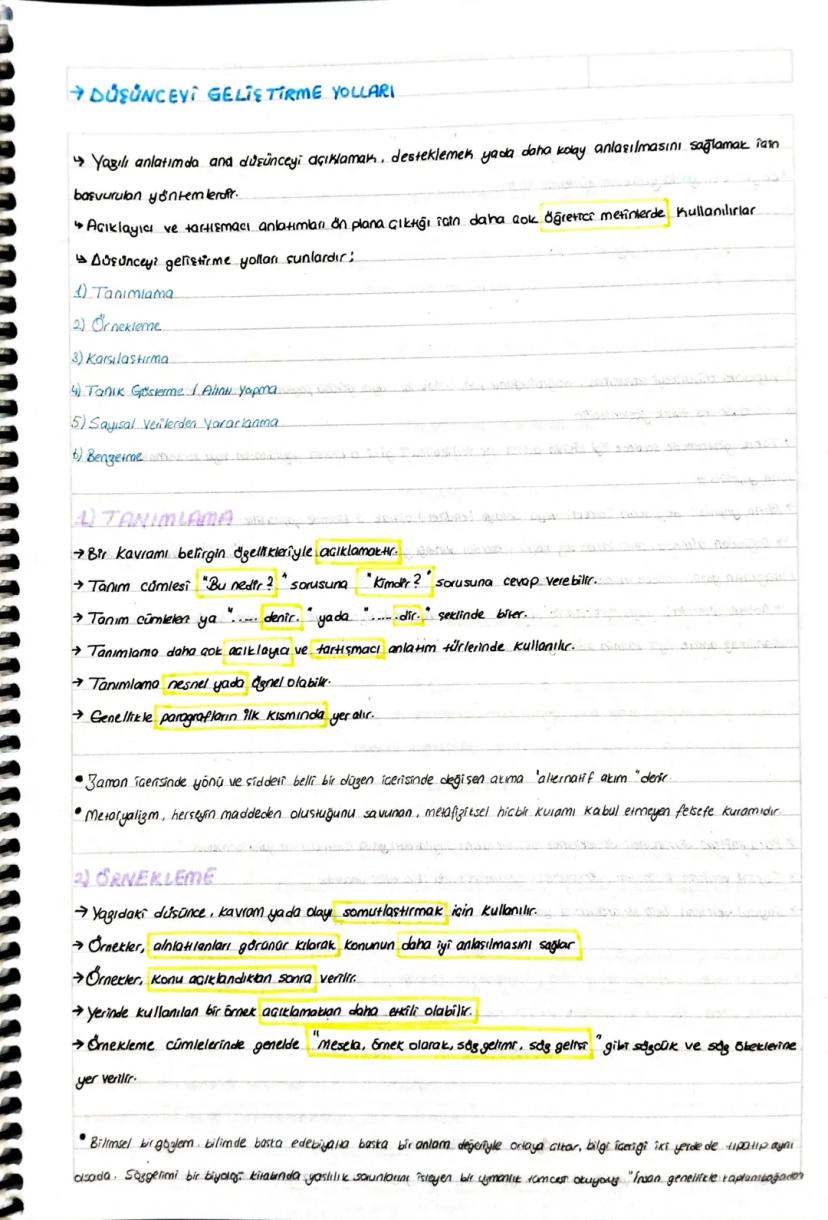 → DÜŞÜNCEYİ GELİŞTİRME YOLLARI
↳ Yazılı anlatımda ana düşünceyi açıklamak, desteklemek yada daha kolay anlaşılmasını sağlamak için
başvurulan yöntemlerdir.
↳ Açıklayıcı ve tartışmacı anlatımları ön plana çıktığı için daha çok öğretici metinlerde kullanılırlar
↳ Düşünceyi geliştirme yolları şunlardır;
1) Tanımlama
2) Örnekleme
3) Karşılaştırma
4) Tanık Gösterme / Alıntı Yapma
5) Sayısal Verilerden Yararlanma
6) Benzetme
1) TANIMLAMA
→ Bir kavramı belirgin özellikleriyle açıklamaktır.
→ Tanım cümlesi "Bu nedir?" sorusuna "Kimdir?" sorusuna cevap verebilir.
→ Tanım cümleleri ya "..... denir." yada ".....dir." şeklinde biter.
→ Tanımlama daha çok açıklayıcı ve tartışmacı anlatım türlerinde kullanılır.
→ Tanımlama nesnel yada öznel olabilir.
→ Genellikle paragrafların ilk kısmında yer alır.
• Zaman içerisinde yönü ve şiddeti belli bir düzen içerisinde değişen akıma 'alternatif akım" denir.
• Metaryalizm, herşeyin maddeden oluştuğunu savunan, metafizitsel hiçbir kuramı kabul etmeyen felsefe kuramıdır.
2) ÖRNEKLEME
→ Yazıdaki düşünce, kavram yada olayı somutlaştırmak için kullanılır.
→ Örnekler, anlatılanları görünür kılarak konunun daha iyi anlaşılmasını sağlar
→ Örnekler, konu açıklandıktan sonra verilir.
→ Yerinde kullanılan bir örnek açıklamaktan daha etkili olabilir.
→ Örnekleme cümlelerinde genelde "Mesela, örnek olarak, söz gelimi, söz gelişi" gibi sözcük ve söz öbeklerine
yer verilir.
• Bilimsel bir gözlem, bilimde başta edebiyatta başka bir anlam değeriyle ortaya çıkar, bilgi içeriği iki yerde de tıpatıp aynı
olsada. Sözgelimi bir biyoloji kitabında yaşlılık sorunlarını işleyen bir uzmanlık okuyoruz "İnsan genellikle kaplumbağadan